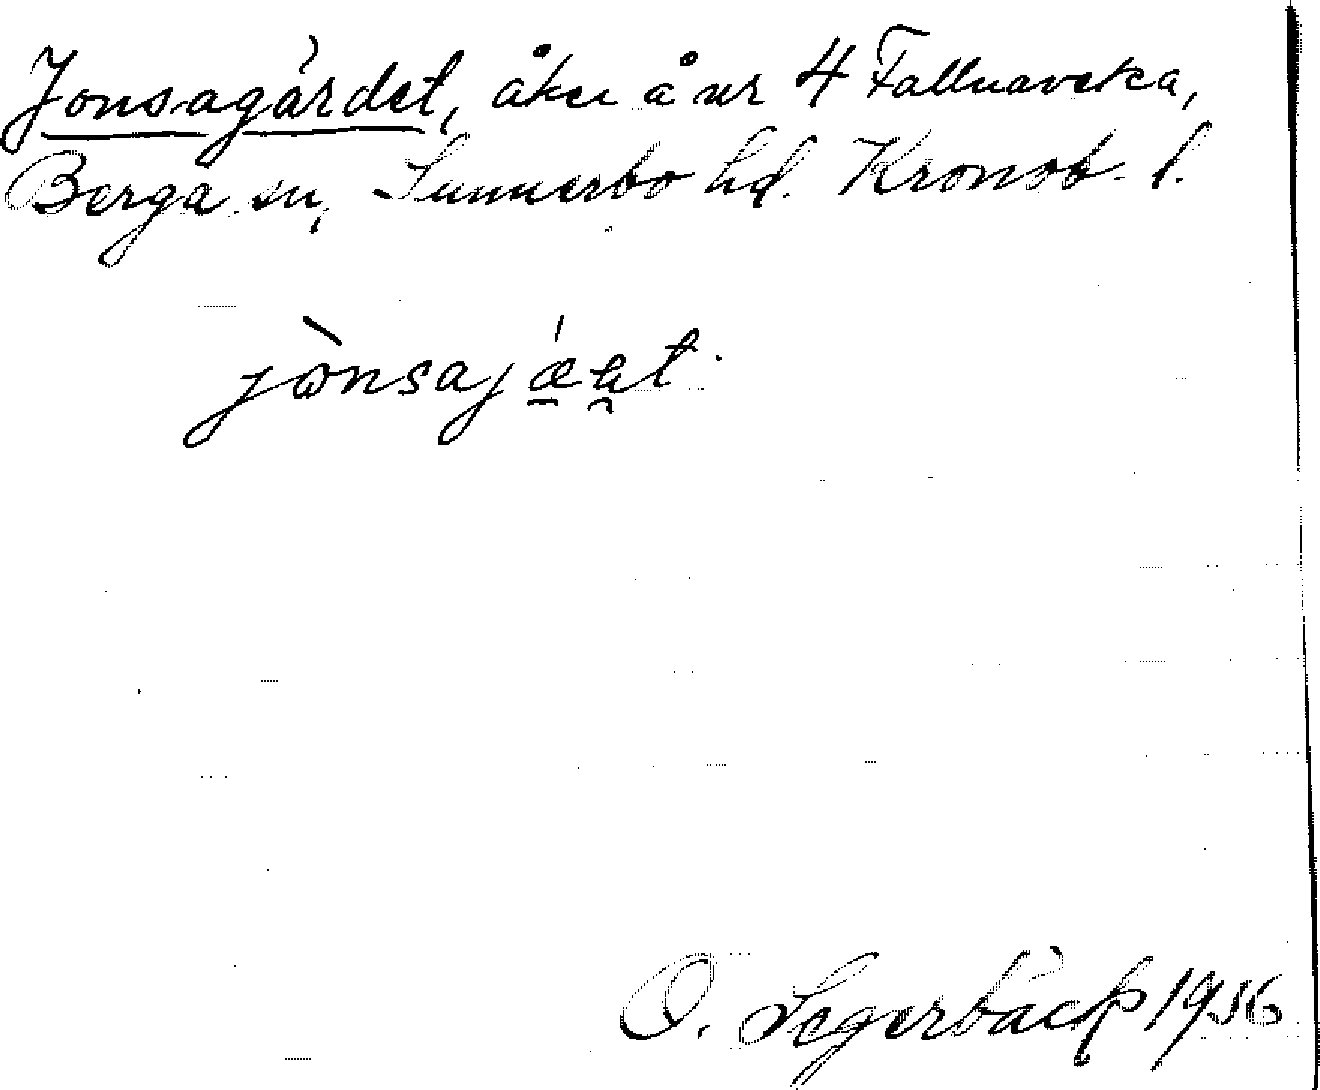 Jonsagärdet, åker å nr 4 Fallnaveka,
Berga sn, Sunnerbo hd. Kronob. l.
jònsajæ̠ʹt.
O. Segerbäck 1936